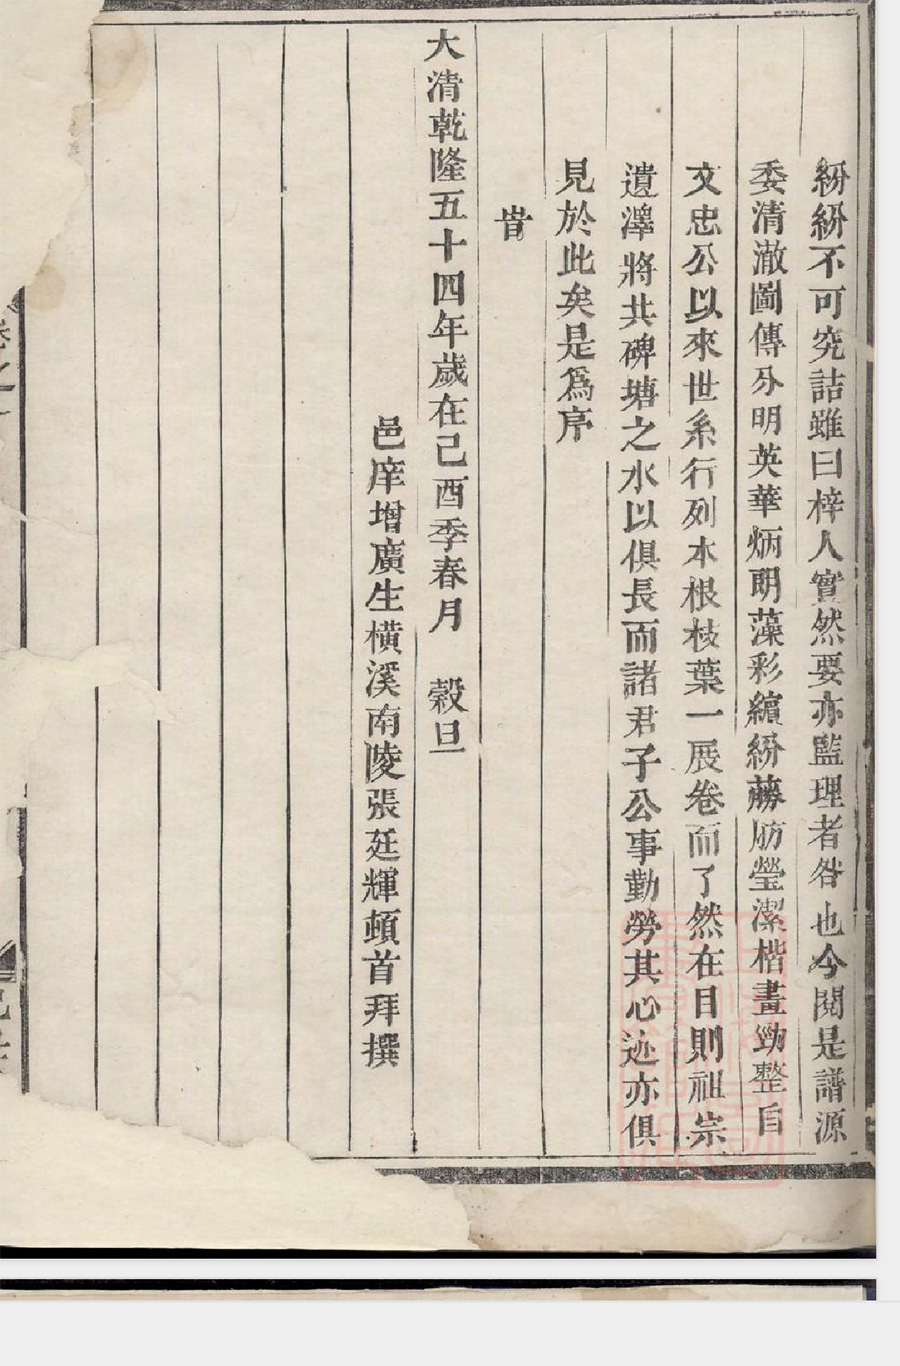 紛紛不可究詰雖曰梓人實然要亦監理者咎也今閱是譜源
委清澈圖傳分明英華炳朗藻彩繽紛藤肪瑩潔楷畫勁整自
文忠公以來世系行列本根枝葉一展卷而了然在目則祖宗
遺澤將共碑塘之水以俱長而諸君子公事勤勞其心迹亦俱
見於此矣是爲序
旹
大清乾隆五十四年歲在己酉季春月　穀旦
邑庠增廣生橫溪南陵張廷輝頓首拜撰
卷之